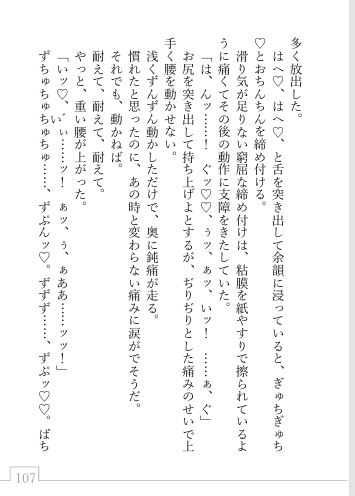 多く放出した。
はへ♡、はへ♡、と舌を突き出して余韻に浸っていると、ぎゅちぎゅち
♡とおちんちんを締め付ける。
滑り気が足りない窮屈な締め付けは、粘膜を紙やすりで擦られているよ
うに痛くてその後の動作に支障をきたしていた。
「は、んッ……！　ぐッ♡♡、ぅッ、ぁッ、いッ！　……ぁ、ぐ」
お尻を突き出して持ち上げよとするが、ぢりぢりとした痛みのせいで上
手く腰を動かせない。
浅くずんずん動かしただけで、奥に鈍痛が走る。
慣れたと思ったのに、あの時と変わらない痛みに涙がでそうだ。
それでも、動かねば。
耐えて、耐えて、耐えて。
やっと、重い腰が上がった。
「いッ♡、い゛ぃ……ッ！　ぁッ、ぅ、ぁああ……ッッ！」
ずちゅちゅちゅちゅ……、ずぷんッ♡。ずずず……、ずぷッ♡♡。ぱち
107